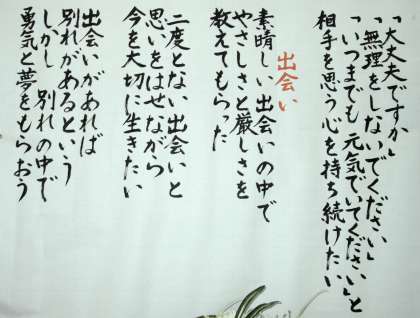 「大丈夫ですか」
「無理をしないでください」
「いつまでも 元気でいてください」と
相手を思う心を持ち続けたい
出会い
素晴しい出会いの中で
やさしさと厳しさを
教えてもらった
二度とない出会いと
思いをはせながら
今を大切に生きたい
出会いがあれば
別れがあるという
しかし 別れの中で
勇気と夢をもらおう